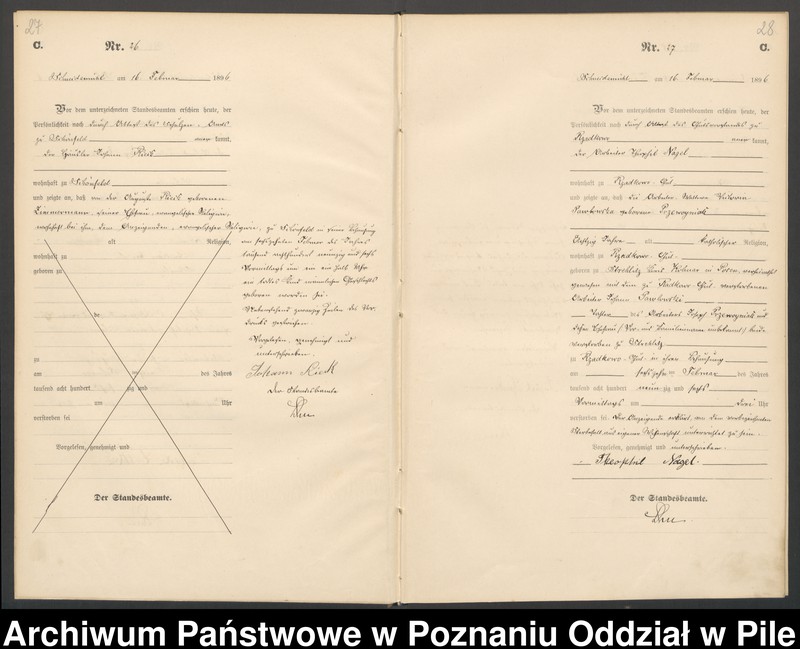 27
C. Nr. 26
Schneidemühl am 16 Februar 1896
Vor dem unterzeichneten Standesbeamten erschien heute, der
Persönlichkeit nach durch Attest des Schulzen-Amts
zu Schönfeld kannt,
der Johann Rieck
wohnhaft zu Schönfeld
und zeigte an, daß von der Auguste Rieck geborenen
Zimmermann seiner Ehefrau, evangelischer Religion,
wohnhaft bei ihm, dem Anzeigenden, evangelischer Religion, zu Schönfeld in seiner Wohnung
alt Religion,
wohnhaft zu
geboren zu
de
zu
am des Jahres
tausend acht hundert zig und
am Uhr
verstorben sei
Vorgelesen, genehmigt und
Der Standesbeamte.
am sechszehnten Februar des Jahres
tausend achthundert neunzig und sechs
Vormittags um ein ein halb Uhr
ein todtes Kind männlichen Geschlechts
geboren worden sei.
Vorstehend zwanzig Zeilen des Vor-
drucks gestrichen.
Vorgelesen, genehmigt und
unterschrieben.
Johann Rieck
Der Standesbeamte
28
Nr. 27 C.
Schneidemühl am 16 Februar 1896
Vor dem unterzeichneten Standesbeamten erschien heute, der
Persönlichkeit nach durch Attest des Gutsvorstandes zu
Rzadkowo kannt,
der Arbeiter Theophil Nagel
wohnhaft zu Rzadkowo Gut
und zeigte an, daß die Arbeiter Wittwe
Pawlowska geborene
Achtzig Jahre alt katholischer Religion,
wohnhaft zu Rzadkowo Gut
geboren zu Kreis Kolmar in Posen, verheirathet
gewesen mit dem zu Rzadkowo Gut verstorbenen
Arbeiter Johann Pawlowski
Tochter des Arbeiters Joseph und
dessen Ehefrau (Vor- und Familienname unbekannt) beide
verstorben zu
zu Rzadkowo Gut in ihrer Behausung
am sechszehnten Februar des Jahres
tausend acht hundert neunzig und sechs
Vormittags um drei Uhr
verstorben sei. Der Anzeigende erklärt, von dem vorbezeichneten
Sterbefall aus eigener Wissenschaft unterrichtet zu sein.
Vorgelesen, genehmigt und unterschrieben.
Theophiel Nagel
Der Standesbeamte.
Archiwum Państwowe w Poznaniu Oddział w Pile